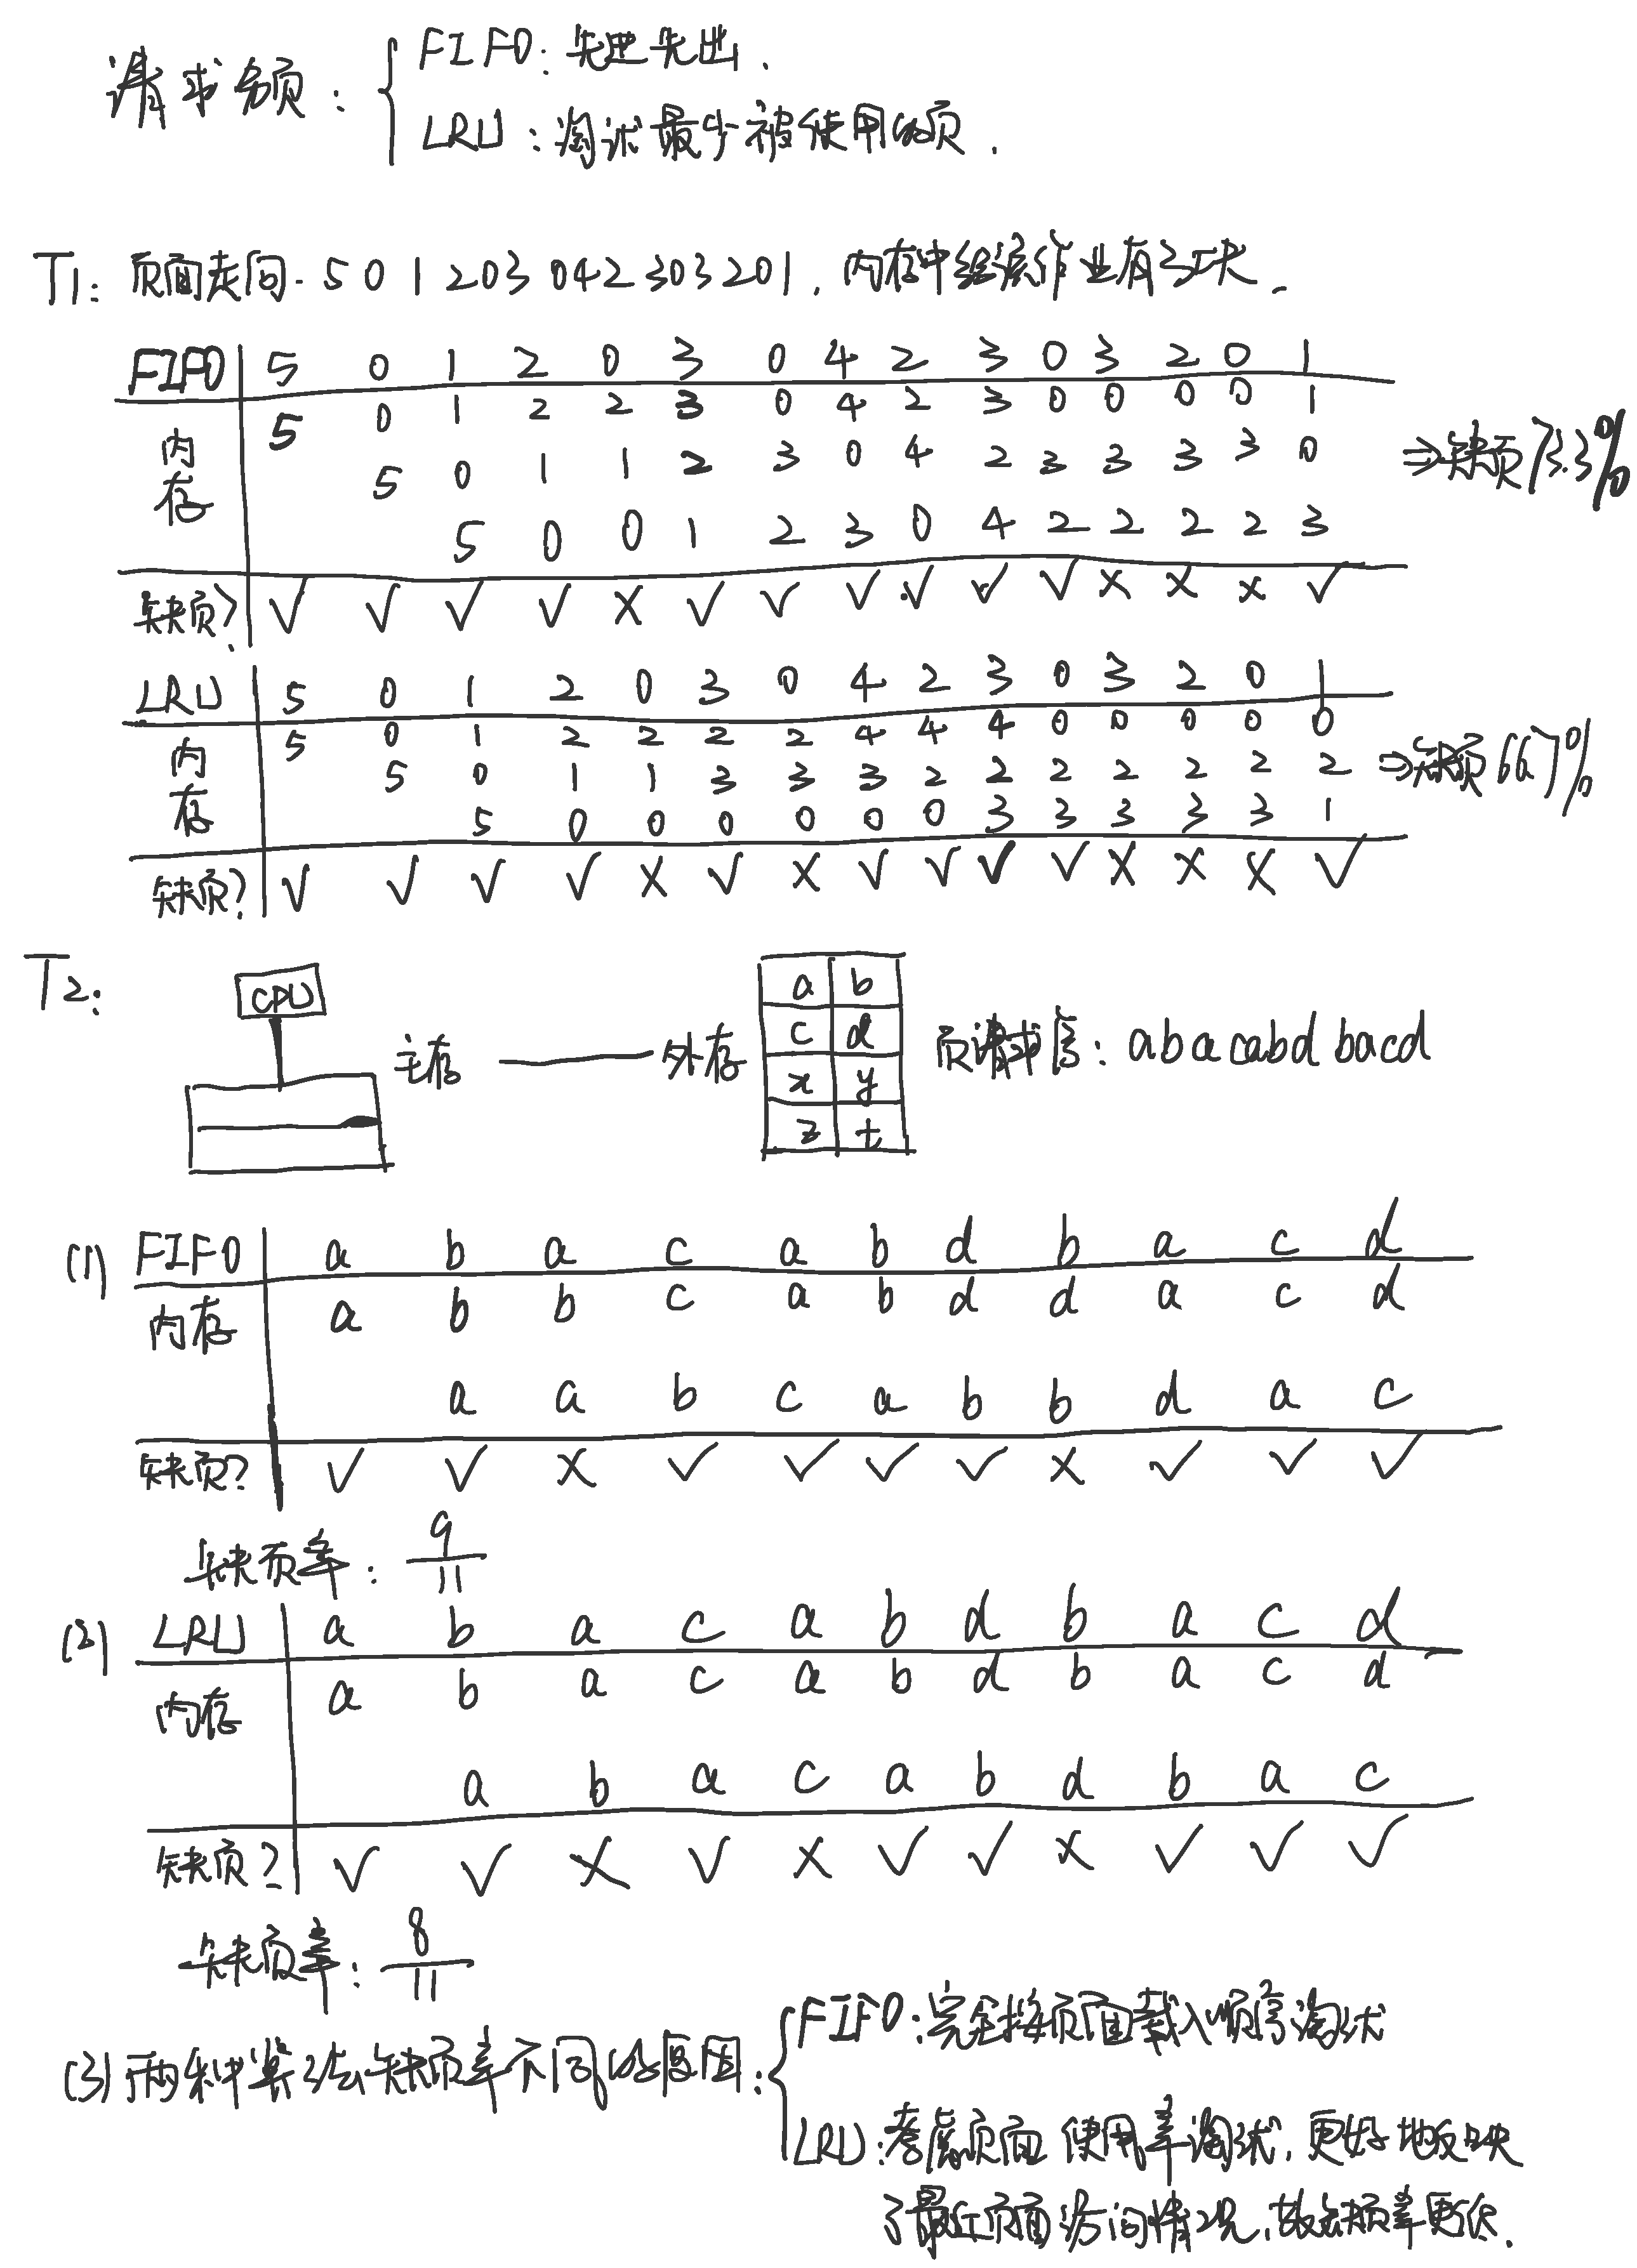 请求分页: FIFO: 先进先出.
LRU: 淘汰最少被使用的页.
T1: 页面走向. 5 0 1 2 0 3 0 4 2 3 0 3 2 0 1, 内存中给该作业有3块.
FIFO 5 0 1 2 0 3 0 4 2 3 0 3 2 0 1
内存 5 0 1 2 2 3 0 4 2 3 0 0 0 0 1
5 0 1 1 2 3 0 4 2 3 3 3 3 0 ⇒缺页73.3%
5 0 0 1 2 3 0 4 2 2 2 2 3
缺页? √ √ √ √ × √ √ √ √ √ √ × × × √
LRU 5 0 1 2 0 3 0 4 2 3 0 3 2 0 1
内存 5 0 1 2 2 2 2 4 4 4 0 0 0 0 0
5 0 1 1 3 3 3 2 2 2 2 2 2 2 ⇒缺页66.7%
5 0 0 0 0 0 0 3 3 3 3 3 1
缺页? √ √ √ √ × √ × √ √ √ √ × × × √
T2: CPU 主存 —— 外存 页请求序: abacabdbacd
a b
c d
x y
z t
(1) FIFO a b a c a b d b a c d
内存 a b b c a b d d a c d
a a b c a b b d a c
缺页? √ √ × √ √ √ √ × √ √ √
缺页率: 9/11
(2) LRU a b a c a b d b a c d
内存 a b a c a b d b a c d
a b a c a b d b a c
缺页? √ √ × √ × √ √ × √ √ √
缺页率: 8/11
(3) 两种算法缺页率不同的原因:
FIFO: 完全按页面载入顺序淘汰
LRU: 考虑页面使用率淘汰, 更好地反映
了最近页面访问情况, 故缺页率更低.